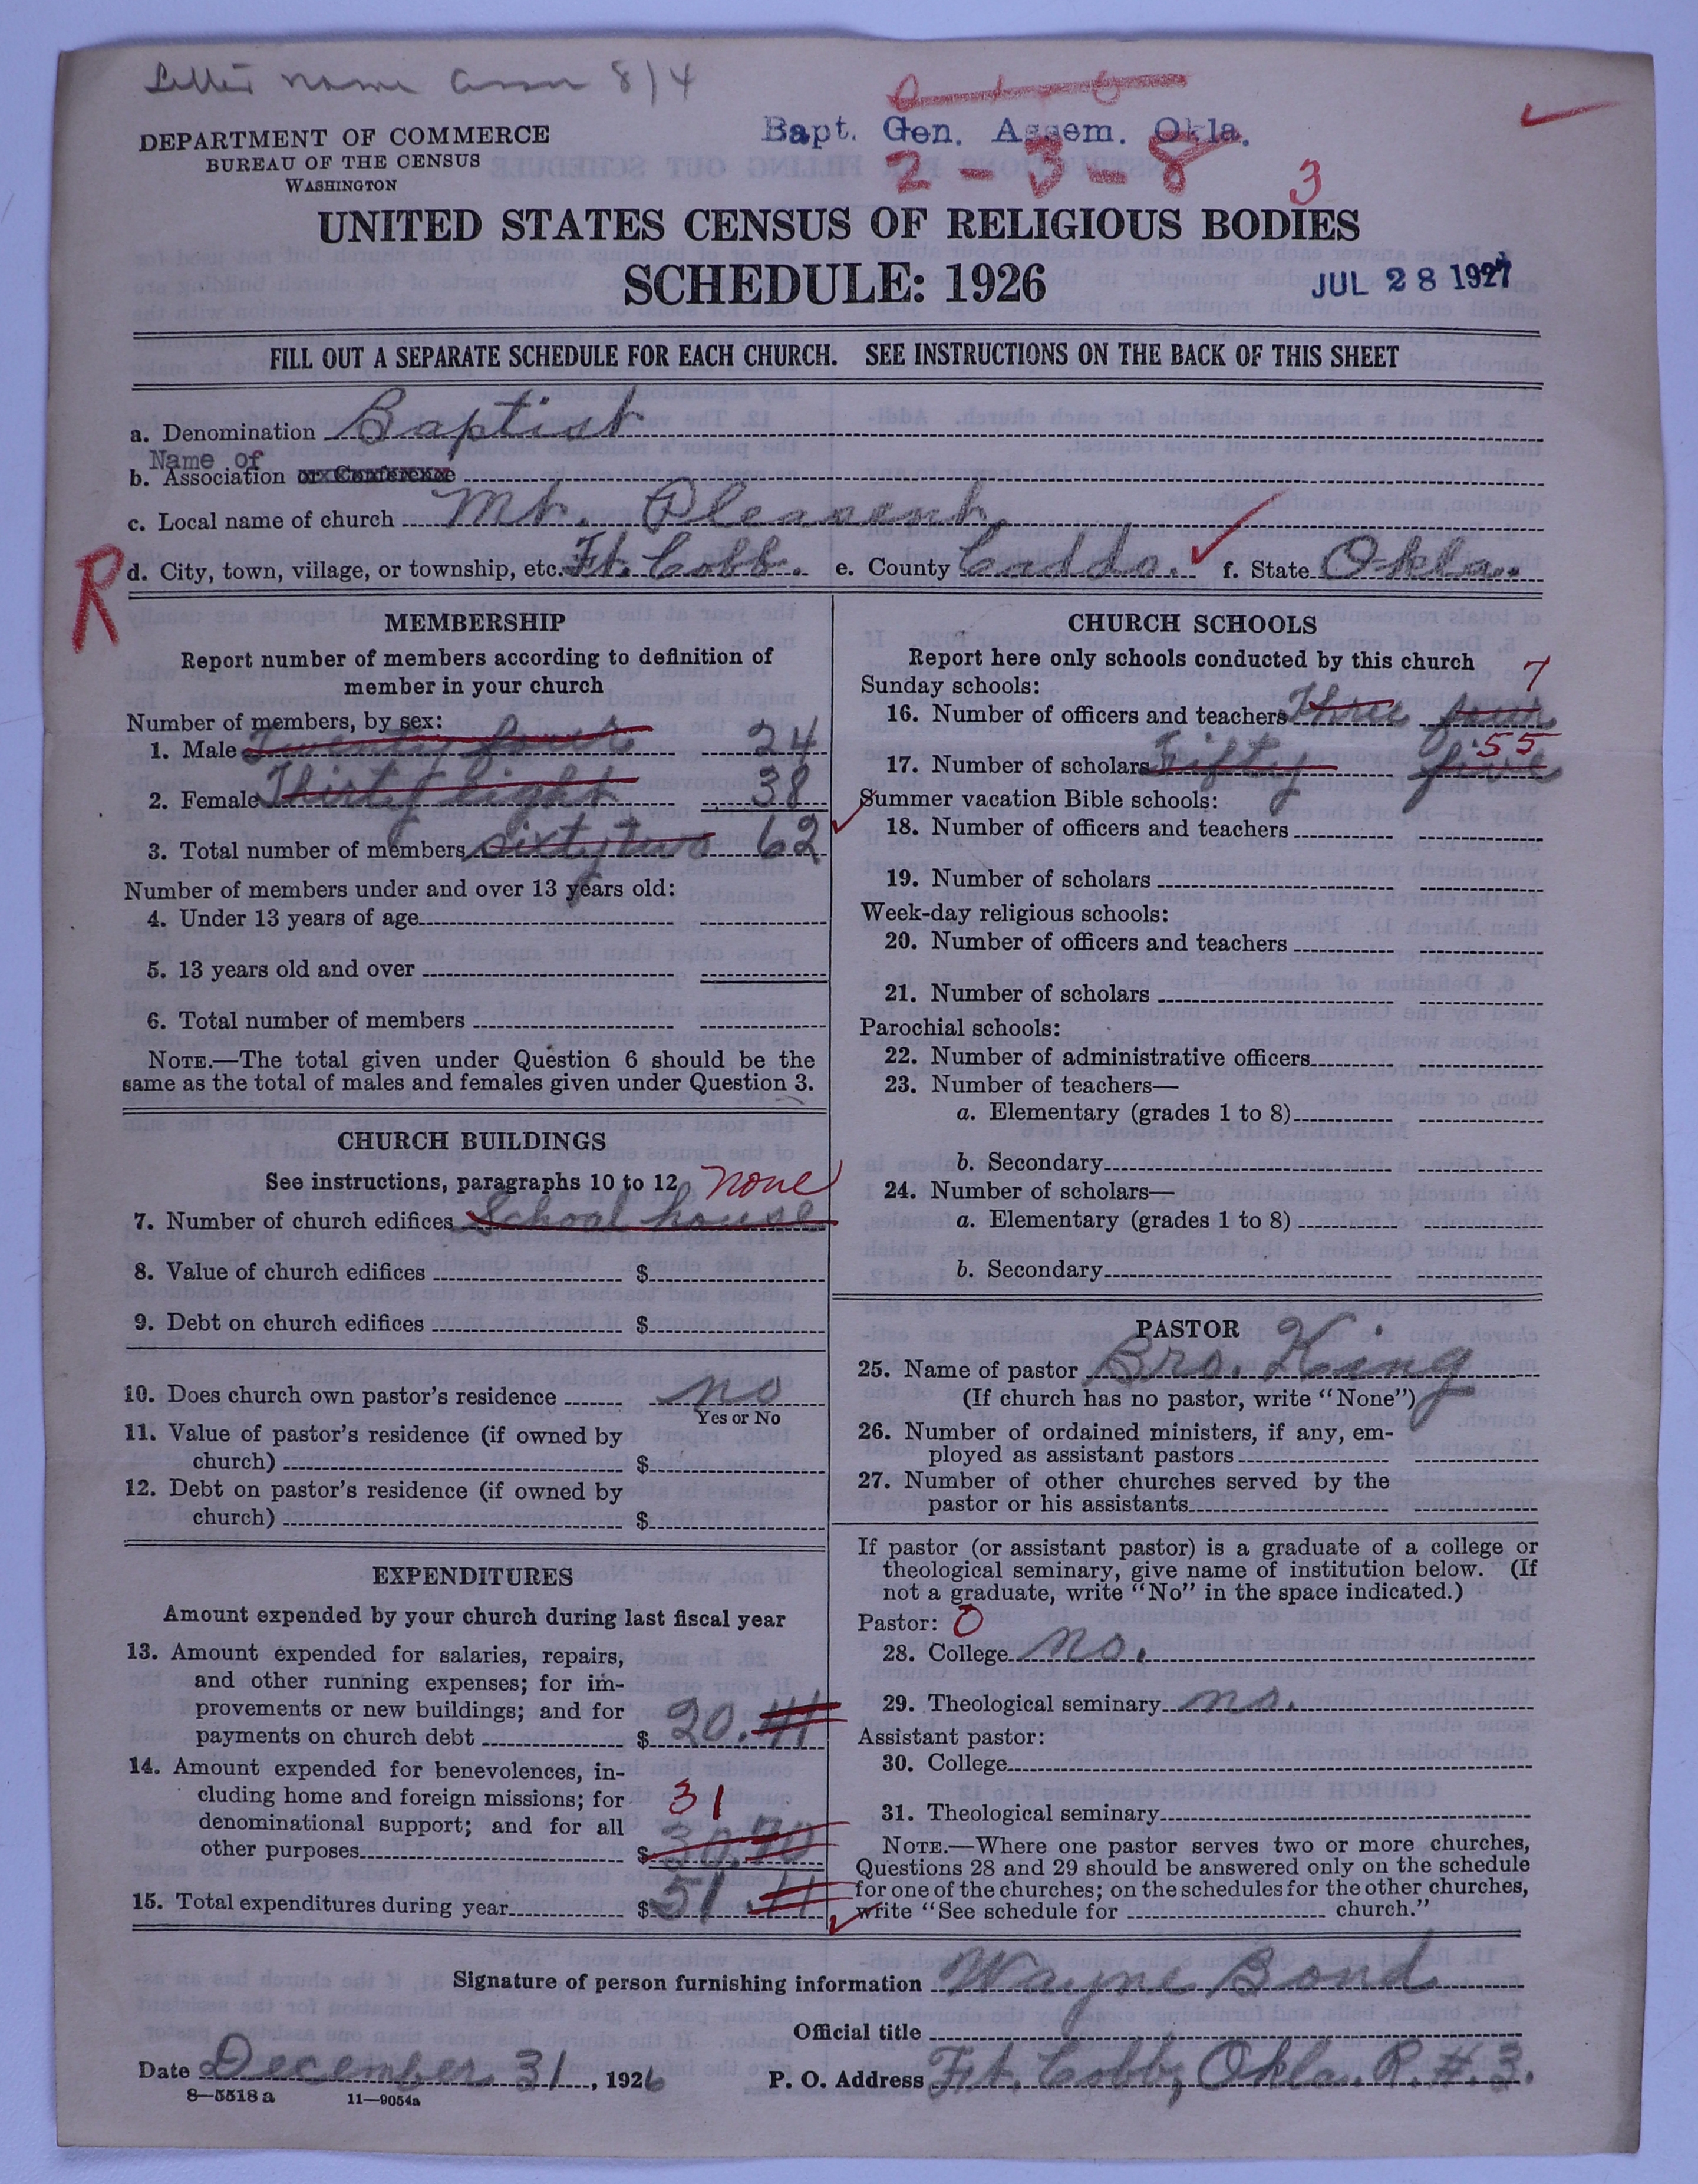 Letter name assn 8/4
Bapt. Gen. Assem. Okla.
2-3-8
3
DEPARTMENT OF COMMERCE
BUREAU OF THE CENSUS
WASHINGTON
UNITED STATES CENSUS OF RELIGIOUS BODIES
SCHEDULE: 1926
JUL 28 1927
FILL OUT A SEPARATE SCHEDULE FOR EACH CHURCH. SEE INSTRUCTIONS ON THE BACK OF THIS SHEET
a. Denomination Baptist
Name of
b. Association or Conference
c. Local name of church Mt. Pleasent.
R
d. City, town, village, or township, etc. Ft. Cobb. e. County Caddo. f. State Okla.
MEMBERSHIP
Report number of members according to definition of
member in your church
Number of members, by sex:
1. Male Twenty four 24
2. Female Thirty eight 38
3. Total number of members Sixty two 62
Number of members under and over 13 years old:
4. Under 13 years of age
5. 13 years old and over
6. Total number of members
NOTE.—The total given under Question 6 should be the
same as the total of males and females given under Question 3.
CHURCH BUILDINGS
See instructions, paragraphs 10 to 12 none
7. Number of church edifices School house
8. Value of church edifices $
9. Debt on church edifices $
10. Does church own pastor's residence no
Yes or No
11. Value of pastor's residence (if owned by
church) $
12. Debt on pastor's residence (if owned by
church) $
EXPENDITURES
Amount expended by your church during last fiscal year
13. Amount expended for salaries, repairs,
and other running expenses; for im-
provements or new buildings; and for
payments on church debt $ 20.41
14. Amount expended for benevolences, in-
cluding home and foreign missions; for
31
denominational support; and for all
other purposes $ 30.70
15. Total expenditures during year $ 51.11
CHURCH SCHOOLS
Report here only schools conducted by this church
Sunday schools: 7
16. Number of officers and teachers Three four
55
17. Number of scholars Fifty five
Summer vacation Bible schools:
18. Number of officers and teachers
19. Number of scholars
Week-day religious schools:
20. Number of officers and teachers
21. Number of scholars
Parochial schools:
22. Number of administrative officers
23. Number of teachers—
a. Elementary (grades 1 to 8)
b. Secondary
24. Number of scholars—
a. Elementary (grades 1 to 8)
b. Secondary
PASTOR
25. Name of pastor Bro. King
(If church has no pastor, write "None")
26. Number of ordained ministers, if any, em-
ployed as assistant pastors
27. Number of other churches served by the
pastor or his assistants
If pastor (or assistant pastor) is a graduate of a college or
theological seminary, give name of institution below. (If
not a graduate, write "No" in the space indicated.)
Pastor: 0
28. College no.
29. Theological seminary no.
Assistant pastor:
30. College
31. Theological seminary
NOTE.—Where one pastor serves two or more churches,
Questions 28 and 29 should be answered only on the schedule
for one of the churches; on the schedules for the other churches,
write "See schedule for church."
Signature of person furnishing information Wayne Bond
Official title
Date December 31, 1926 P. O. Address Ft. Cobb, Okla. R.#.3.
8—5518 a 11—9054a